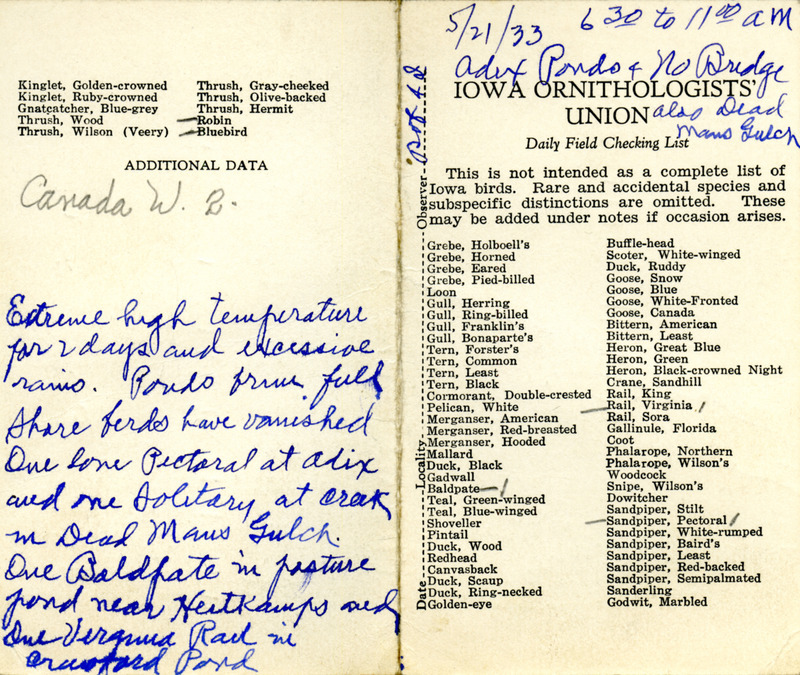 Kinglet, Golden-crowned
Kinglet, Ruby-crowned
Gnatcatcher, Blue-grey
Thrush, Wood
Thrush, Wilson (Veery)
Thrush, Gray-cheeked
Thrush, Olive-backed
Thrush, Hermit
Robin
Bluebird
ADDITIONAL DATA
Canada W. 2.
Extreme high temperature
for 2 days and excessive
rains. Ponds full
Shore berds have vanished
One lone Pectoral at Adix
and one Solitary at creek
in Dead Mans Gulch.
One Baldpate in pasture
pond near Heitkamps and
One Virginia Rail in
Crawford Pond
Date Locality Observer
5/21/33 6 30 to 11 00 AM
Adix Ponds & No Bridge
IOWA ORNITHOLOGISTS'
UNION also Dead
Mans Gulch
Daily Field Checking List
This is not intended as a complete list of
Iowa birds. Rare and accidental species and
subspecific distinctions are omitted. These
may be added under notes if occasion arises.
Grebe, Holboell's
Grebe, Horned
Grebe, Eared
Grebe, Pied-billed
Loon
Gull, Herring
Gull, Ring-billed
Gull, Franklin's
Gull, Bonaparte's
Tern, Forster's
Tern, Common
Tern, Least
Tern, Black
Cormorant, Double-crested
Pelican, White
Merganser, American
Merganser, Red-breasted
Merganser, Hooded
Mallard
Duck, Black
Gadwall
Baldpate 1
Teal, Green-winged
Teal, Blue-winged
Shoveller
Pintail
Duck, Wood
Redhead
Canvasback
Duck, Scaup
Duck, Ring-necked
Golden-eye
Buffle-head
Scoter, White-winged
Duck, Ruddy
Goose, Snow
Goose, Blue
Goose, White-Fronted
Goose, Canada
Bittern, American
Bittern, Least
Heron, Great Blue
Heron, Green
Heron, Black-crowned Night
Crane, Sandhill
Rail, King
Rail, Virginia 1
Rail, Sora
Gallinule, Florida
Coot
Phalarope, Northern
Phalarope, Wilson's
Woodcock
Snipe, Wilson's
Dowitcher
Sandpiper, Stilt
Sandpiper, Pectoral 1
Sandpiper, White-rumped
Sandpiper, Baird's
Sandpiper, Least
Sandpiper, Red-backed
Sandpiper, Semipalmated
Sanderling
Godwit, Marbled